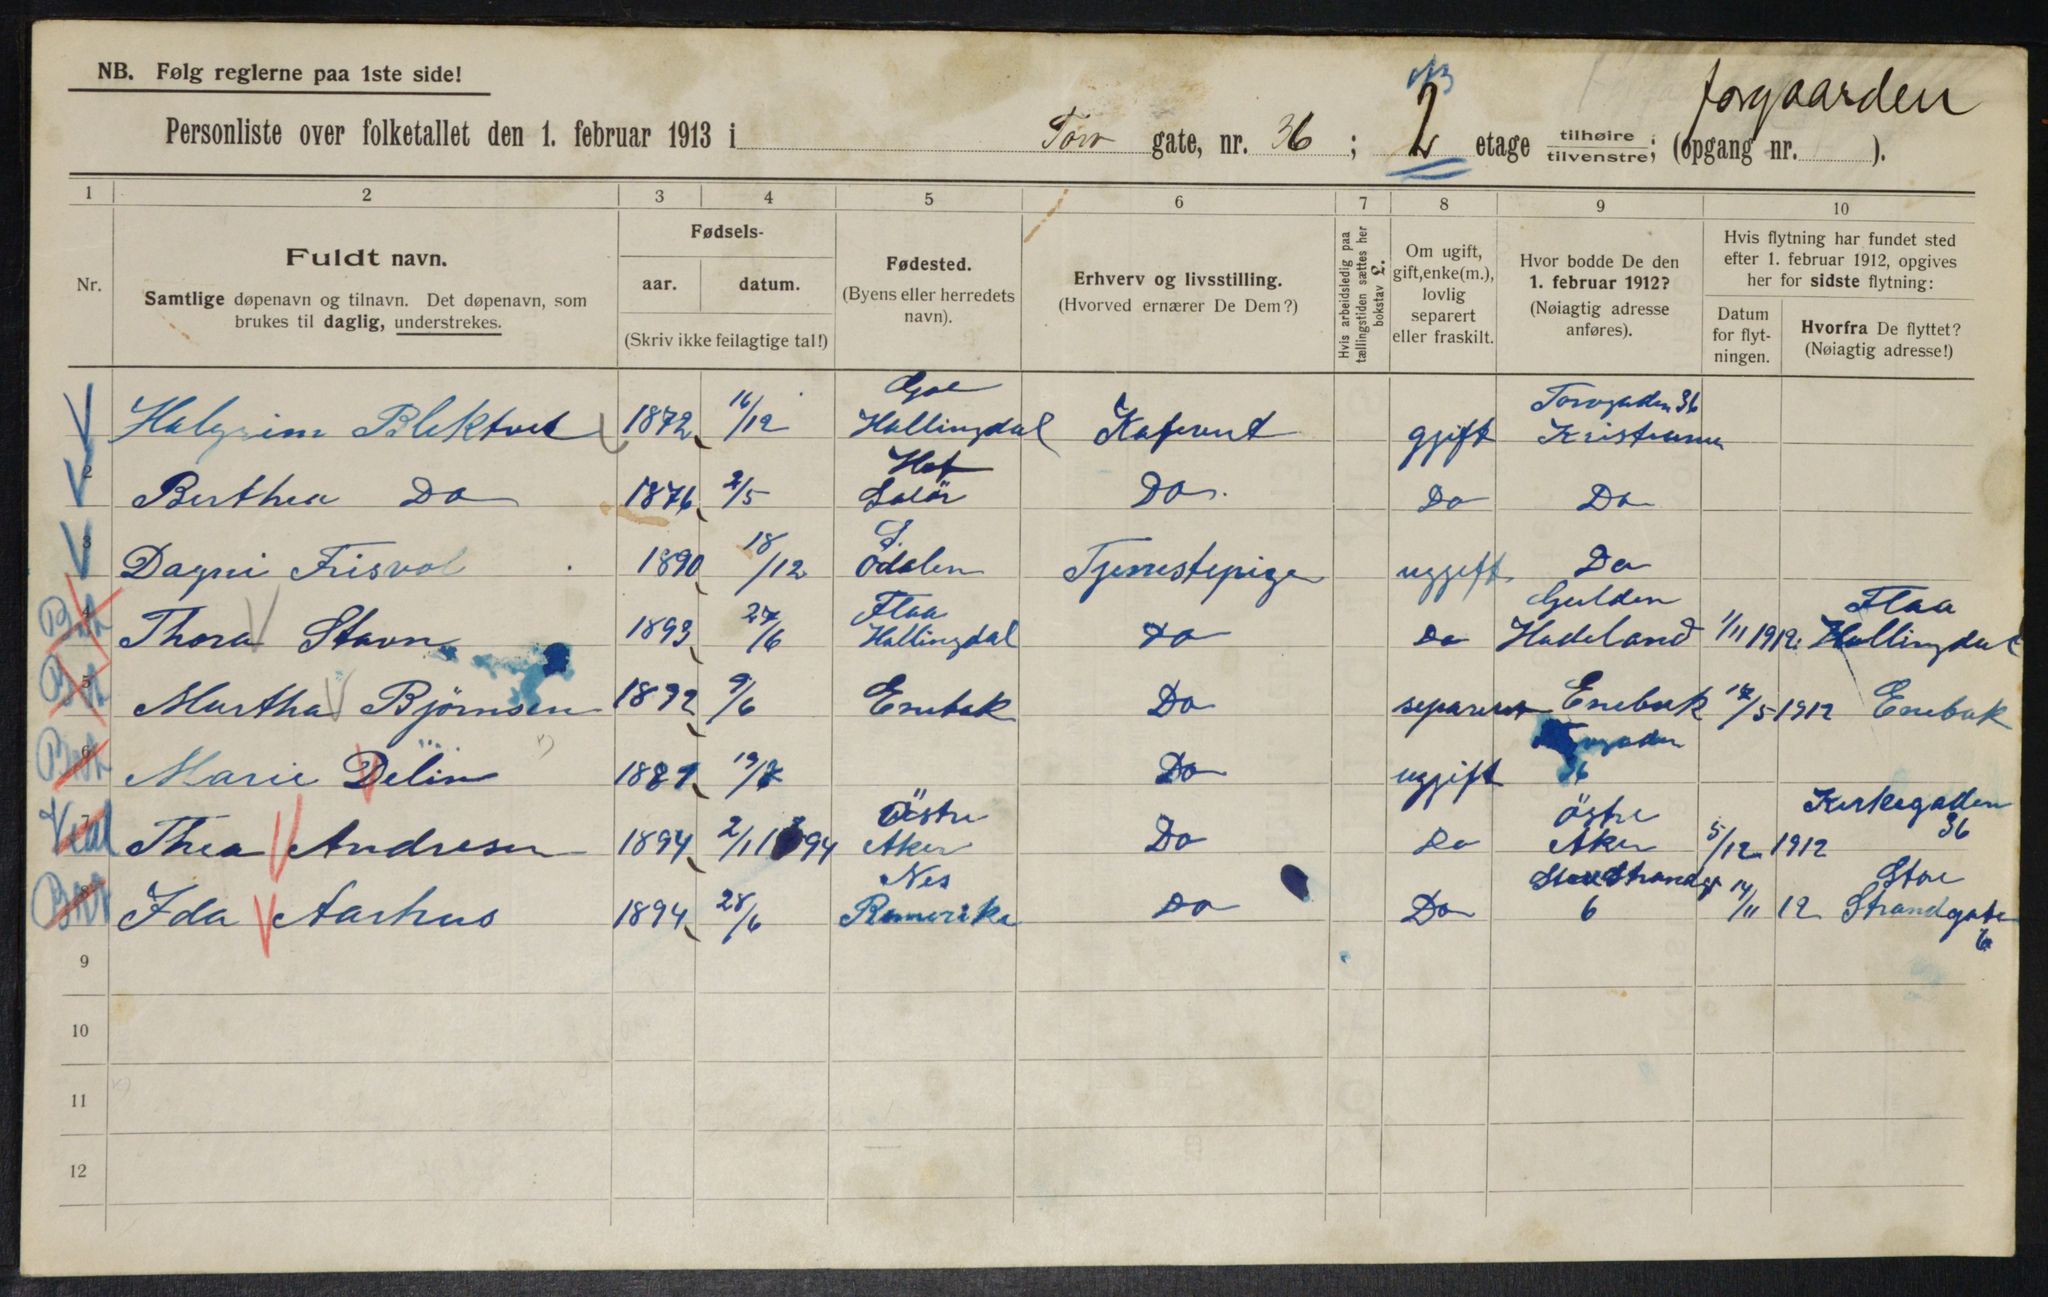 NB. Følg reglerne paa 1ste side!
forgaarden
Personliste over folketallet den 1. februar 1913 i Torv gate, nr. 36; 2 etage tilhøire / tilvenstre; (opgang nr. ).
1 2 3 4 5 6 7 8 9 10
Nr.
Fuldt navn.
Samtlige døpenavn og tilnavn. Det døpenavn, som
brukes til daglig, understrekes.
Fødsels-
aar. datum.
(Skriv ikke feilagtige tal!)
Fødested.
(Byens eller herredets
navn).
Erhverv og livsstilling.
(Hvorved ernærer De Dem?)
Hvis arbeidsledig paa
tællingstiden sættes her
bokstav £.
Om ugift,
gift, enke(m.),
lovlig
separert
eller fraskilt.
Hvor bodde De den
1. februar 1912?
(Nøiagtig adresse
anføres).
Hvis flytning har fundet sted
efter 1. februar 1912, opgives
her for sidste flytning:
Datum
for flyt-
ningen.
Hvorfra De flyttet?
(Nøiagtig adresse!)
Gol Torvgaden 36
Halgrim Blektvet 1872 16/12 Hallingdal Kafevert gjift Kristiania
Hof
2 Berthea Do 1876 2/5 Solør Do. Do Do
S.
3 Dagni Frisvol 1890 18/12 Odalen Tjenestepige ugjift Do
Flaa Gulden Flaa
4 Thora Stavn 1893 27/6 Hallingdal Do Do Hadeland 1/11 1912. Hallingdal
5 Martha Bjørnsen 1892 9/6 Enebak Do separert Enebak 5 1912 Enebak
6 Marie Delin 18 19/ Do ugjift 36
Östre Östre Kirkegaden
7 Thea Andresen 1894 2/11 94 Aker Do Do Aker 5/12 1912 36
Nes Store Strandgt Store
8 Ida Aarhus 1894 28/6 Romerike Do Do 6 14/11 12 Strandgate
6
9
10
11
12